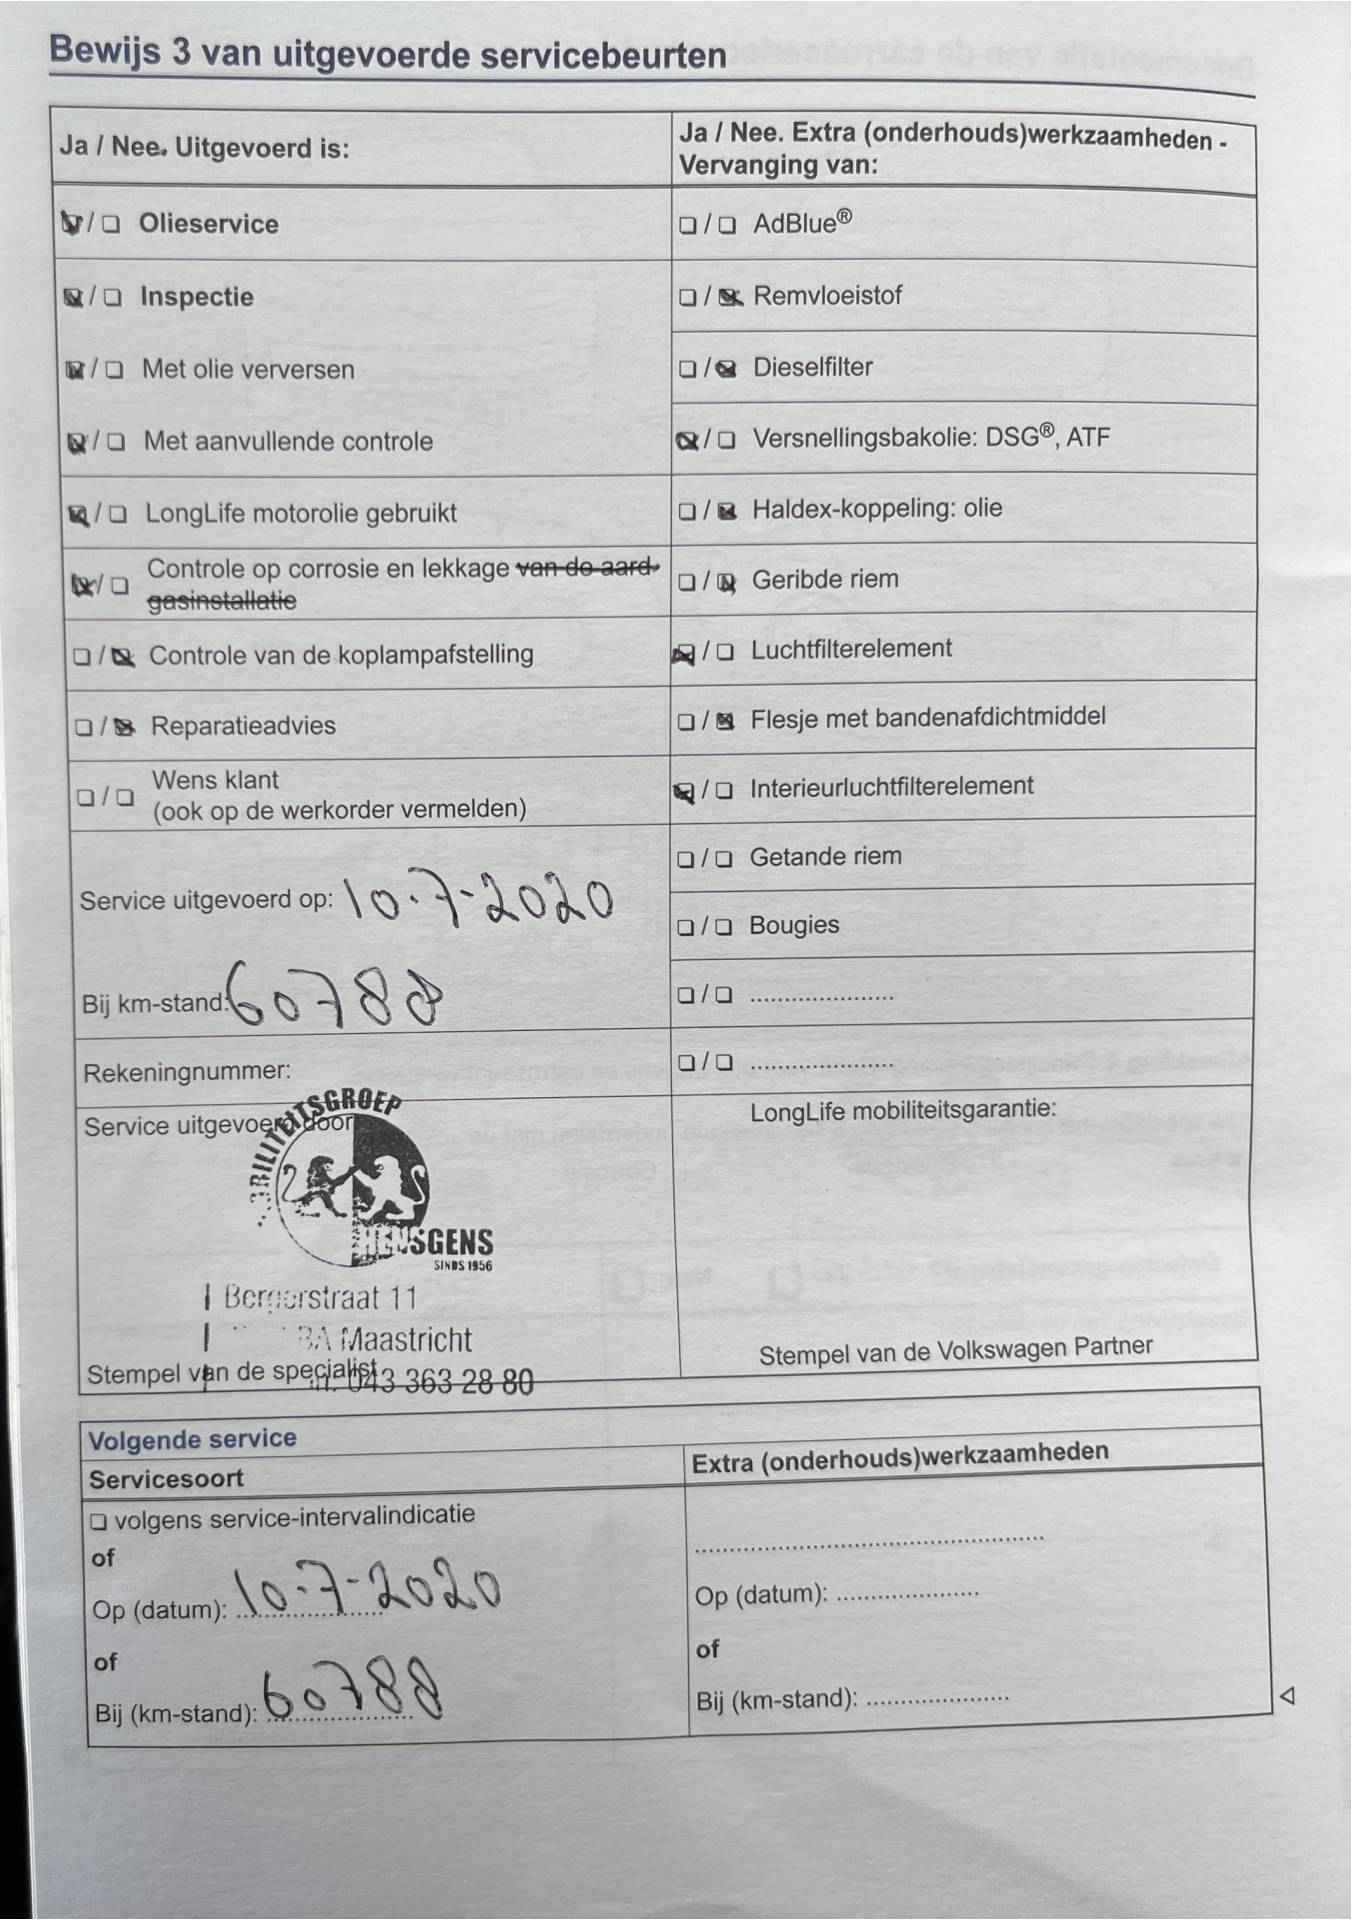 Bewijs 3 van uitgevoerde servicebeurten
Ja / Nee. Uitgevoerd is:
Olieservice
Inspectie
Met olie verversen
Met aanvullende controle
LongLife motorolie gebruikt
Controle op corrosie en lekkage van de aard-
gasinstallatie
Controle van de koplampafstelling
Reparatieadvies
Wens klant
(ook op de werkorder vermelden)
Service uitgevoerd op: 10-7-2020
Bij km-stand: 60788
Rekeningnummer:
Service uitgevoerd door
MOBILITEITSGROEP
HENSGENS
SINDS 1956
Bergerstraat 11
BA Maastricht
Stempel van de specialist
043 363 28 80
Ja / Nee. Extra (onderhouds)werkzaamheden -
Vervanging van:
AdBlue®
Remvloeistof
Dieselfilter
Versnellingsbakolie: DSG®, ATF
Haldex-koppeling: olie
Geribde riem
Luchtfilterelement
Flesje met bandenafdichtmiddel
Interieurluchtfilterelement
Getande riem
Bougies
LongLife mobiliteitsgarantie:
Stempel van de Volkswagen Partner
Volgende service
Servicesoort
volgens service-intervalindicatie
of
Op (datum): 10-7-2020
of
Bij (km-stand): 60788
Extra (onderhouds)werkzaamheden
Op (datum):
of
Bij (km-stand):